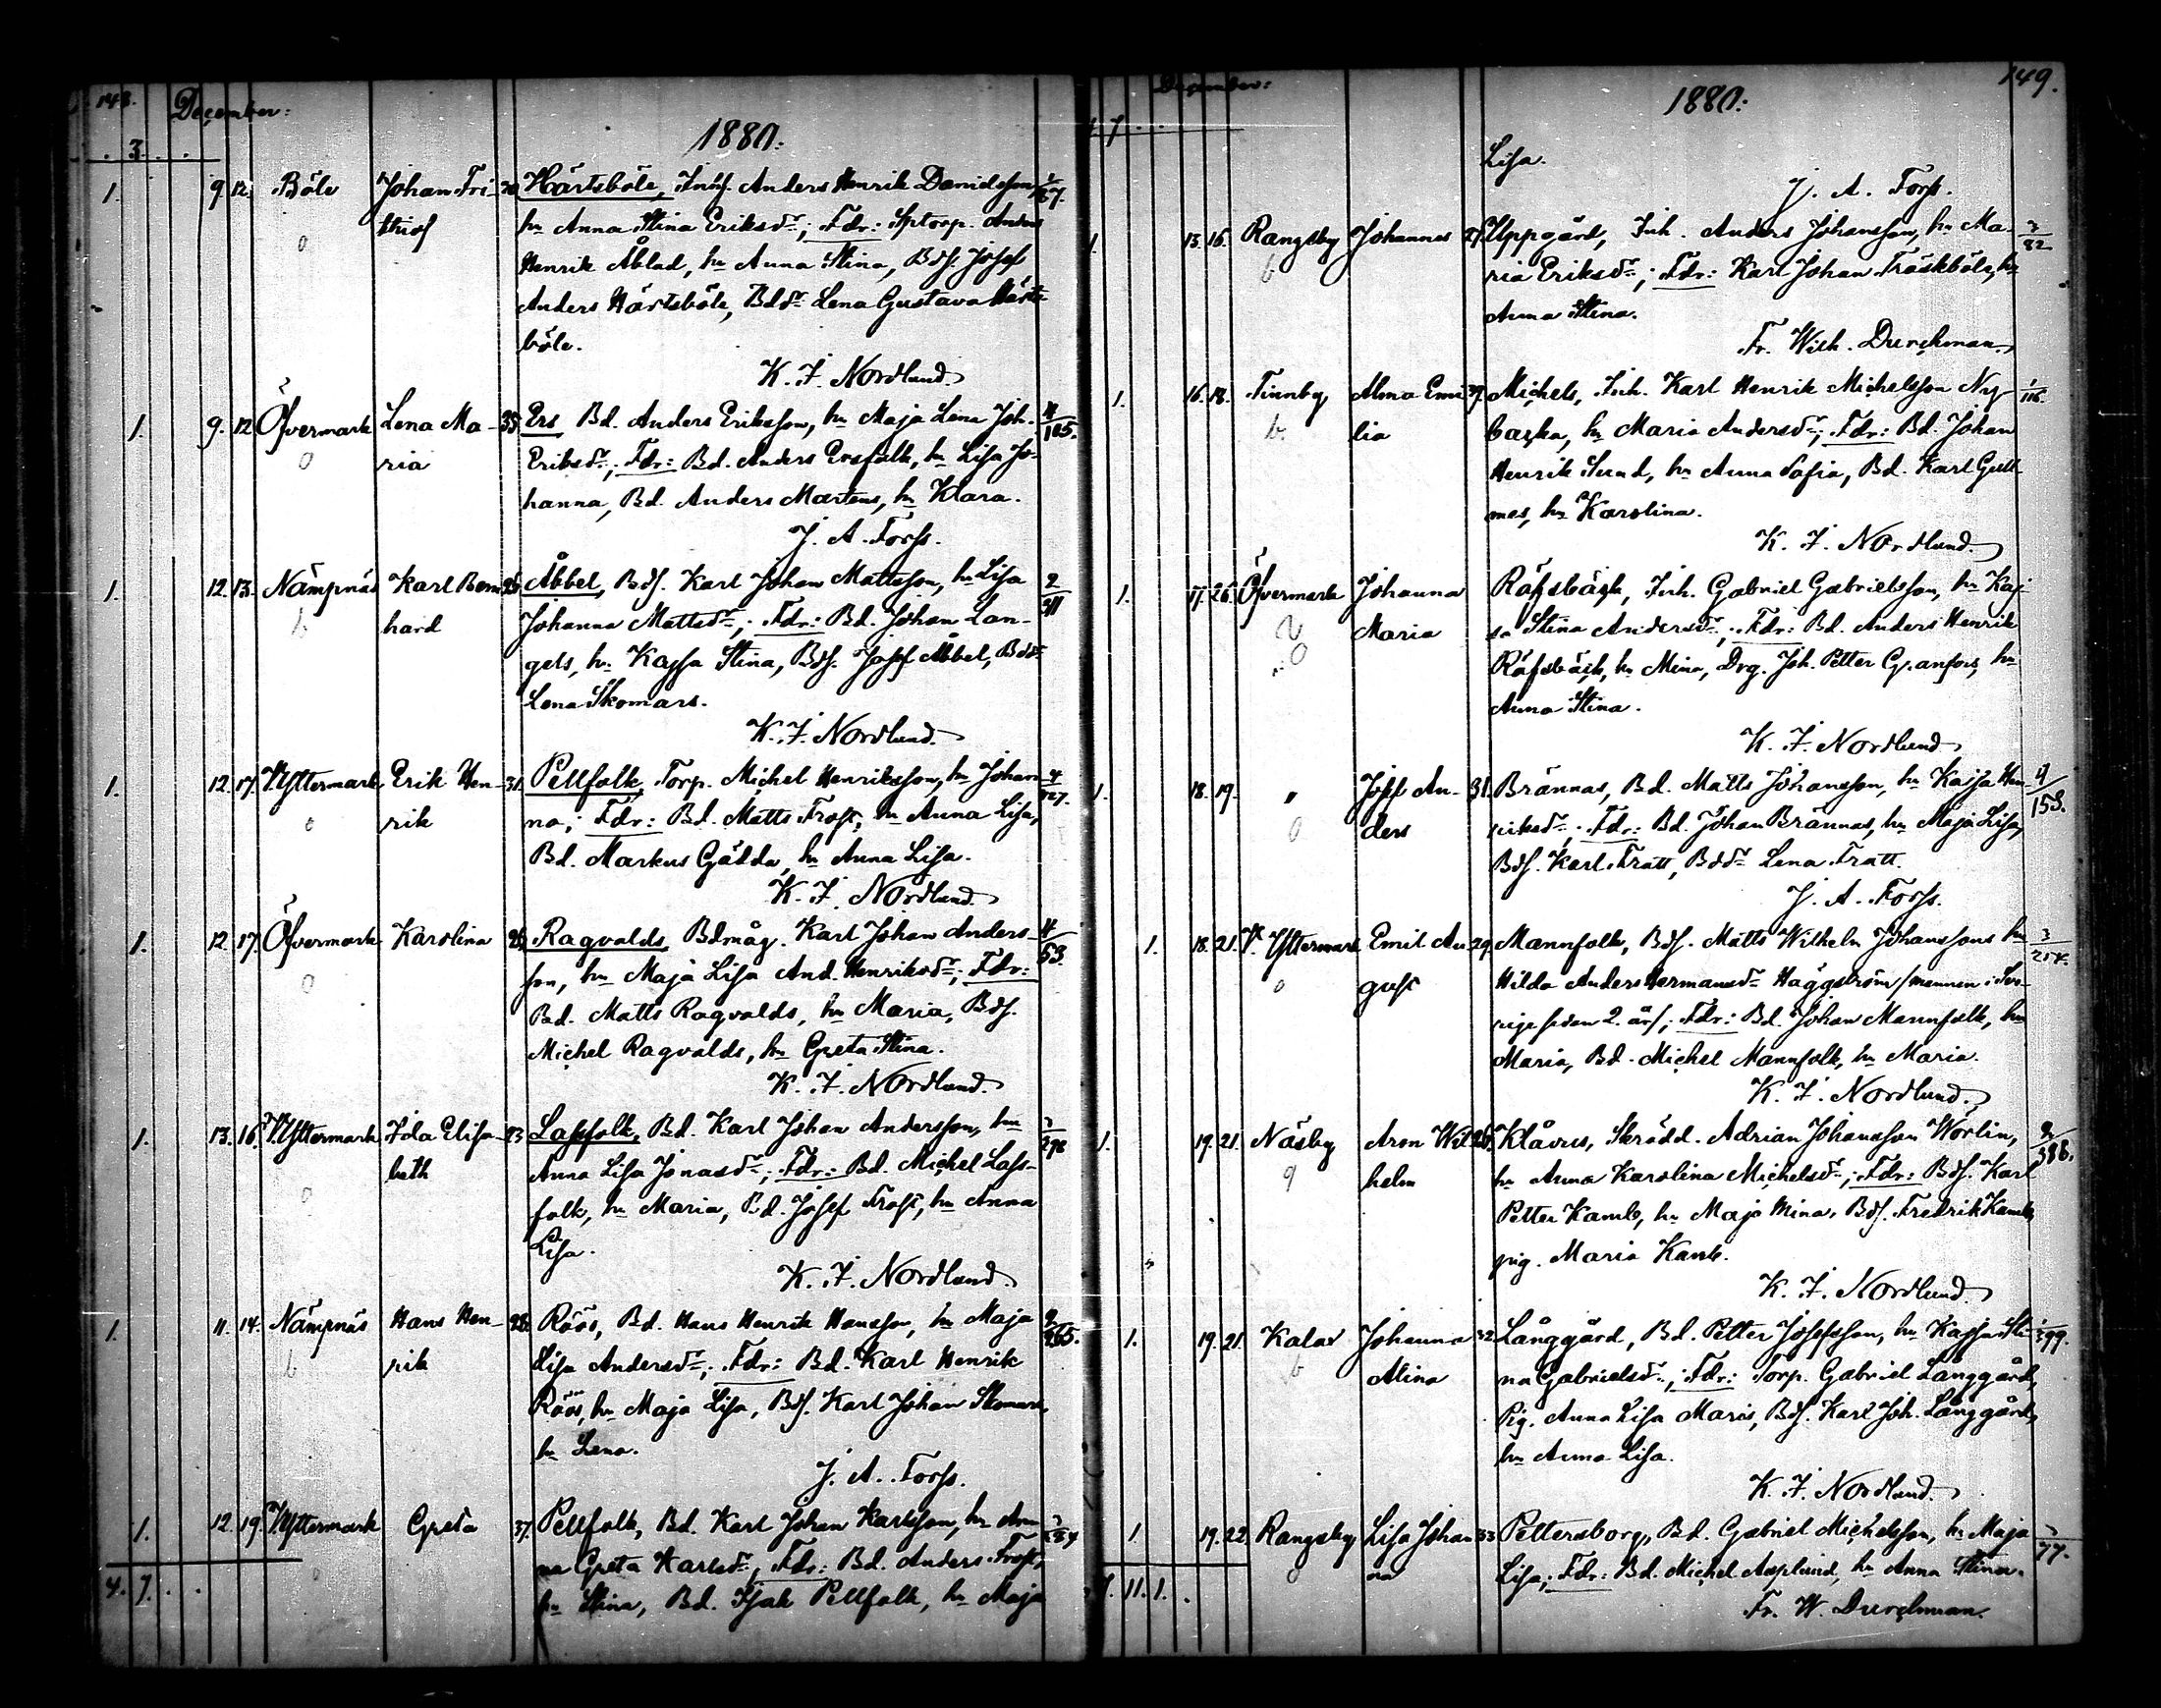 148.
December:
1880.
. 3. . .
1. 9. 12. Böle Johan Fri- Härtsböle, Inh. Anders Henrik Danielsson
o thiof hu Anna Stina Eriksdr; Fdr: Sptorp. Anders
Henrik Åblad, hu Anna Stina, Bds. Josef
Anders Härtsböle, Bddr Lena Gustava Härts-
böle.
K. J. Nordlund.
1. 9. 12. Öfvermark Lena Ma- 35. Ers Bd. Anders Eriksson, hu Maja Lena Joh. 4/105.
o ria Eriksdr; Fdr: Bd. Anders Ersfolk, hu Lisa Jo-
hanna, Bd. Anders Martens, hu Klara.
J. A. Forss.
1. 12. 13. Nämpnäs Karl Bern- Åbbel, Bds. Karl Johan Mattsson, hu Lisa
b hard Johanna Mattsdr; Fdr: Bd. Johan Lan-
gels, hu Kajsa Stina, Bds. Josef Åbbel, Bddr
Lena Skomars.
K. J. Nordlund.
1. 12. 17. Yttermark Erik Hen- 31. Pellfolk, Torp. Michel Henriksson, hu Johan-
o rik na; Fdr: Bd. Matts Frost, hu Anna Lisa,
Bd. Markus Gädda, hu Anna Lisa.
K. J. Nordlund.
1. 12. 17. Öfvermark Karolina Ragvalds, Bdmåg. Karl Johan Anders- 4/53.
o son, hu Maja Lisa And. Henriksdr; Fdr:
Bd. Matts Ragvalds, hu Maria, Bds.
Michel Ragvalds, hu Greta Stina.
K. J. Nordlund.
1. 13. 16. Yttermark Ida Elisa- Lassfolk, Bd. Karl Johan Andersson, hu
o beth Anna Lisa Jonasdr; Fdr: Bd. Michel Lass-
folk, hu Maria, Bd. Josef Frost, hu Anna
Lisa.
K. J. Nordlund.
1. 11. 14. Nämpnäs Hans Hen- 28. Röös, Bd. Hans Henrik Hansson, hu Maja 2/265.
b rik Lisa Andersdr; Fdr: Bd. Karl Henrik
Röös, hu Maja Lisa, Bds. Karl Johan Skomars,
hu Lena.
J. A. Forss.
1. 12. 19. Yttermark Greta 37. Pellfolk, Bd. Karl Johan Karlsson, hu An-
na Greta Karlsdr; Fdr: Bd. Anders Frost,
4. 7. . . hu Stina, Bd. Isak Pellfolk, hu Maja
149.
December:
1880.
4. 7. . .
Lisa.
J. A. Forss.
1. 13. 16. Rangsby Johannes 27. Uppgård, Inh. Anders Johansson, hu Ma- 3/82
b ria Eriksdr; Fdr: Karl Johan Träskböle, hu
Anna Stina.
Fr. Wilh. Durchman.
1. 16. 18. Finnby Alma Emi- 39. Michels, Inh. Karl Henrik Michelsson Ny- 1/116.
b. lia backa, hu Maria Andersdr; Fdr: Bd. Johan
Henrik Sund, hu Anna Sofia, Bd. Karl Gull-
mes, hu Karolina.
K. J. Nordlund.
1. 17. 26. Öfvermark Johanna Räfsbäck, Inh. Gabriel Gabrielsson, hu Kaj-
o Maria sa Stina Andersdr; Fdr: Bd. Anders Henrik
Räfsbäck, hu Mina, Drg. Joh. Petter Granfors, hu
Anna Stina.
K. J. Nordlund
1. 18. 19. " Josef An- 31. Brännas, Bd. Matts Johansson, hu Kajsa Hen- 4/153.
o ders riksdr; Fdr: Bd. Johan Brännas, hu Maja Lisa,
Bds. Karl Fratt, Bddr Lena Fratt.
J. A. Forss.
1. 18. 21. Yttermark Emil Au- 29. Mannfolk, Bds. Matts Wilhelm Johanssons hu 3/214.
o gust Hilda Anders Hermansdr Häggström/mannen i Sve-
rige sedan 2. år/; Fdr: Bd. Johan Mannfolk, hu
Maria, Bd. Michel Mannfolk, hu Maria.
K. J. Nordlund.
1. 19. 21. Näsby Aron Wil- Klåvus, Skrädd. Adrian Johansson Wörlin, 2/386.
helm hu Anna Karolina Michelsdr; Fdr: Bds. Karl
Petter Kamb, hu Maja Mina, Bds. Fredrik Kamb,
pig. Maria Kamb.
K. J. Nordlund.
1. 19. 21. Kalax Johanna 32. Långgård, Bd. Petter Josefsson, hu Kajsa Sti-
b Alina na Gabrielsdr; Fdr: Torp. Gabriel Långgård,
Pig. Anna Lisa Maris, Bds. Karl Joh. Långgård,
hu Anna Lisa.
K. J. Nordlund.
1. 19. 22. Rangsby Lisa Johan- 33. Pettersborg, Bd. Gabriel Michelsson, hu Maja 3/77.
o na Lisa; Fdr: Bd. Michel Asplund, hu Anna Stina.
9. 11. 1. . Fr. W. Durchman.